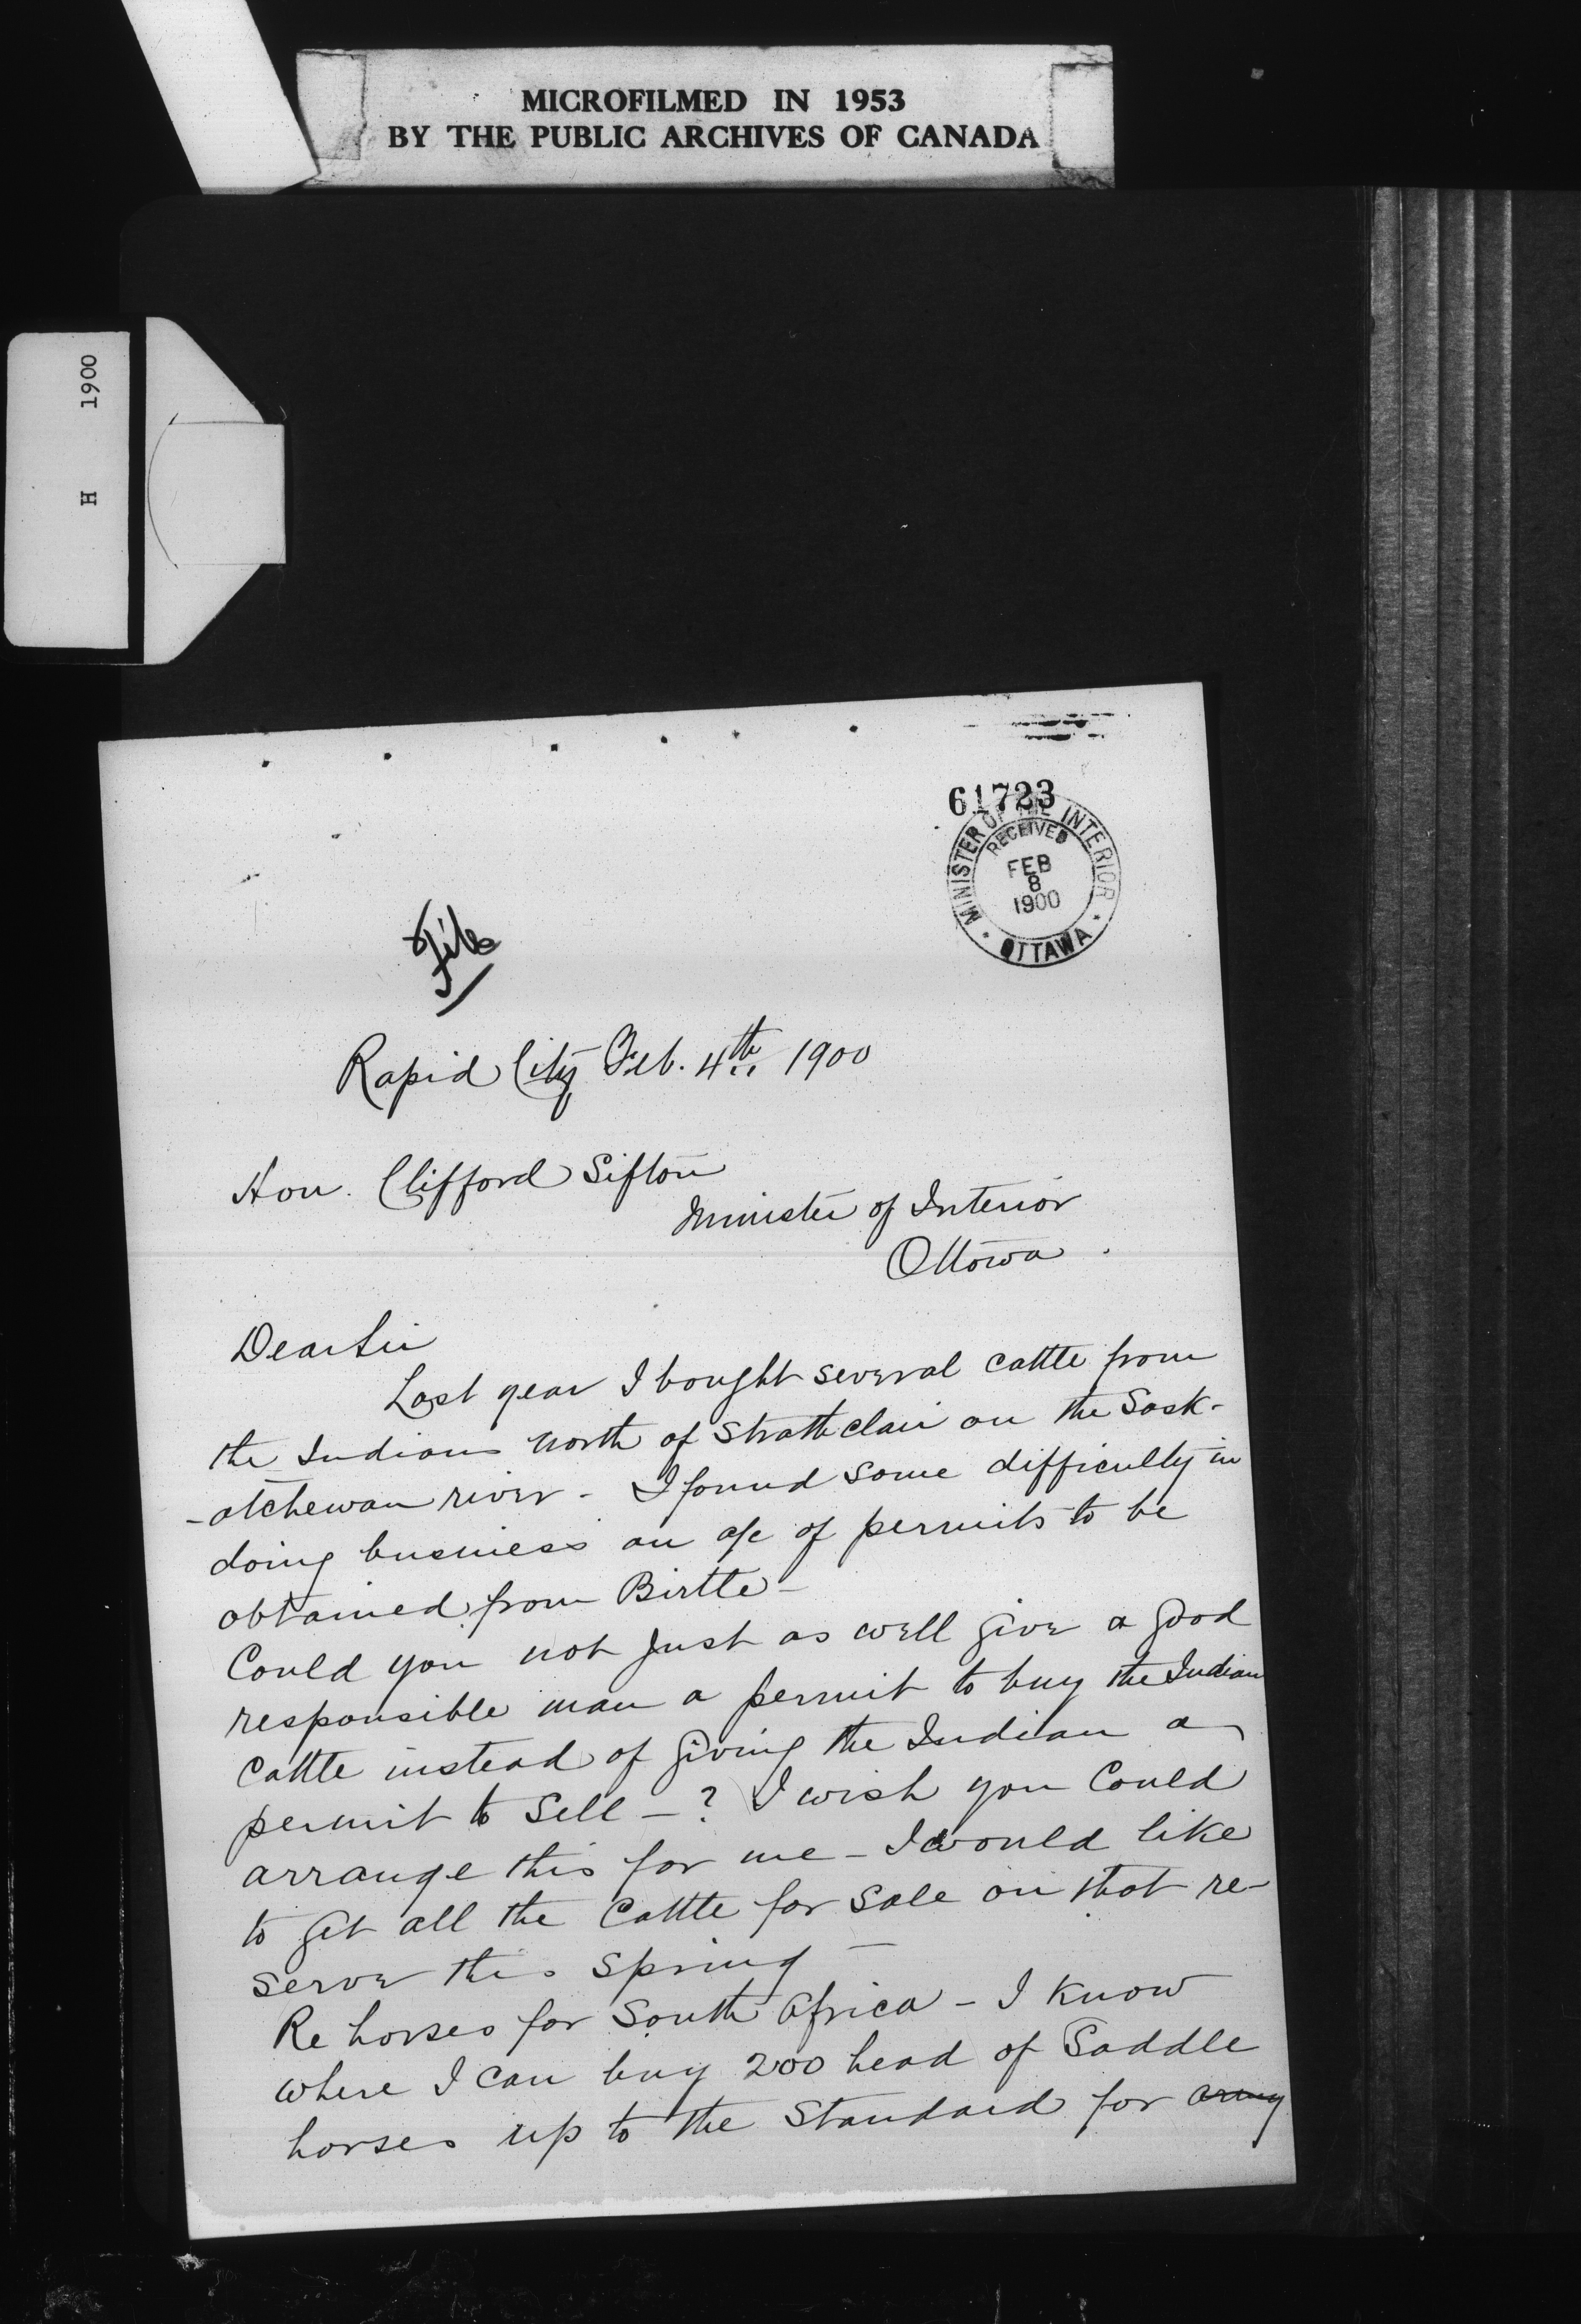 MICROFILMED IN 1953
BY THE PUBLIC ARCHIVES OF CANADA
H 1900
61723
MINISTER OF THE INTERIOR
RECEIVED
FEB
8
1900
OTTAWA
File
Rapid City Feb. 4th 1900
Hon. Clifford Sifton
Minister of Interior
Ottowa.
Dear Sir
Last year I bought several cattle from
the Indians north of Strathclair on the Sask-
-atchewan river - I found some difficulty in
doing business on a/c of permits to be
obtained from Birtle -
Could you not just as well give a good
responsible man a permit to buy the Indian
cattle instead of giving the Indian a
permit to sell - ? I wish you could
arrange this for me - I would like
to get all the cattle for sale on that re-
serve this spring -
Re horses for South Africa - I know
where I can buy 200 head of Saddle
horses up to the standard for army